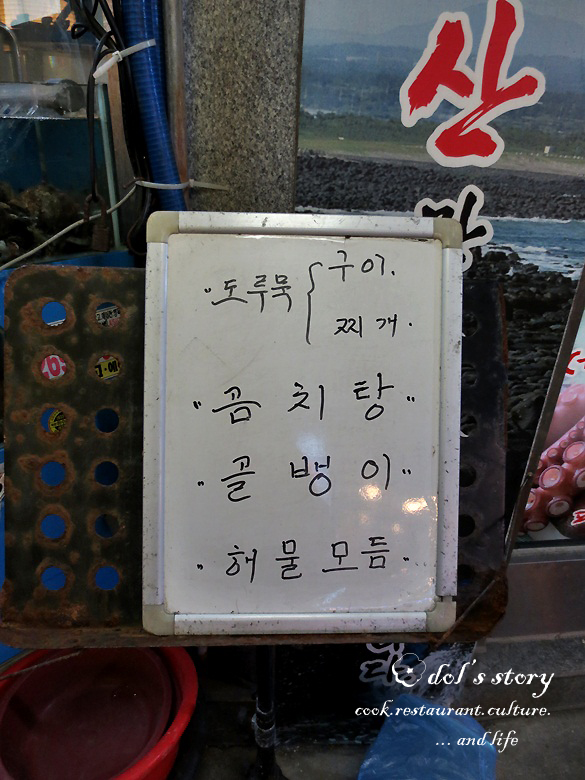 산
"도루묵 { 구이.
찌개.
"곰치탕"
"골뱅이"
"해물모듬"
dol's story
cook.restaurant.culture.
... and life